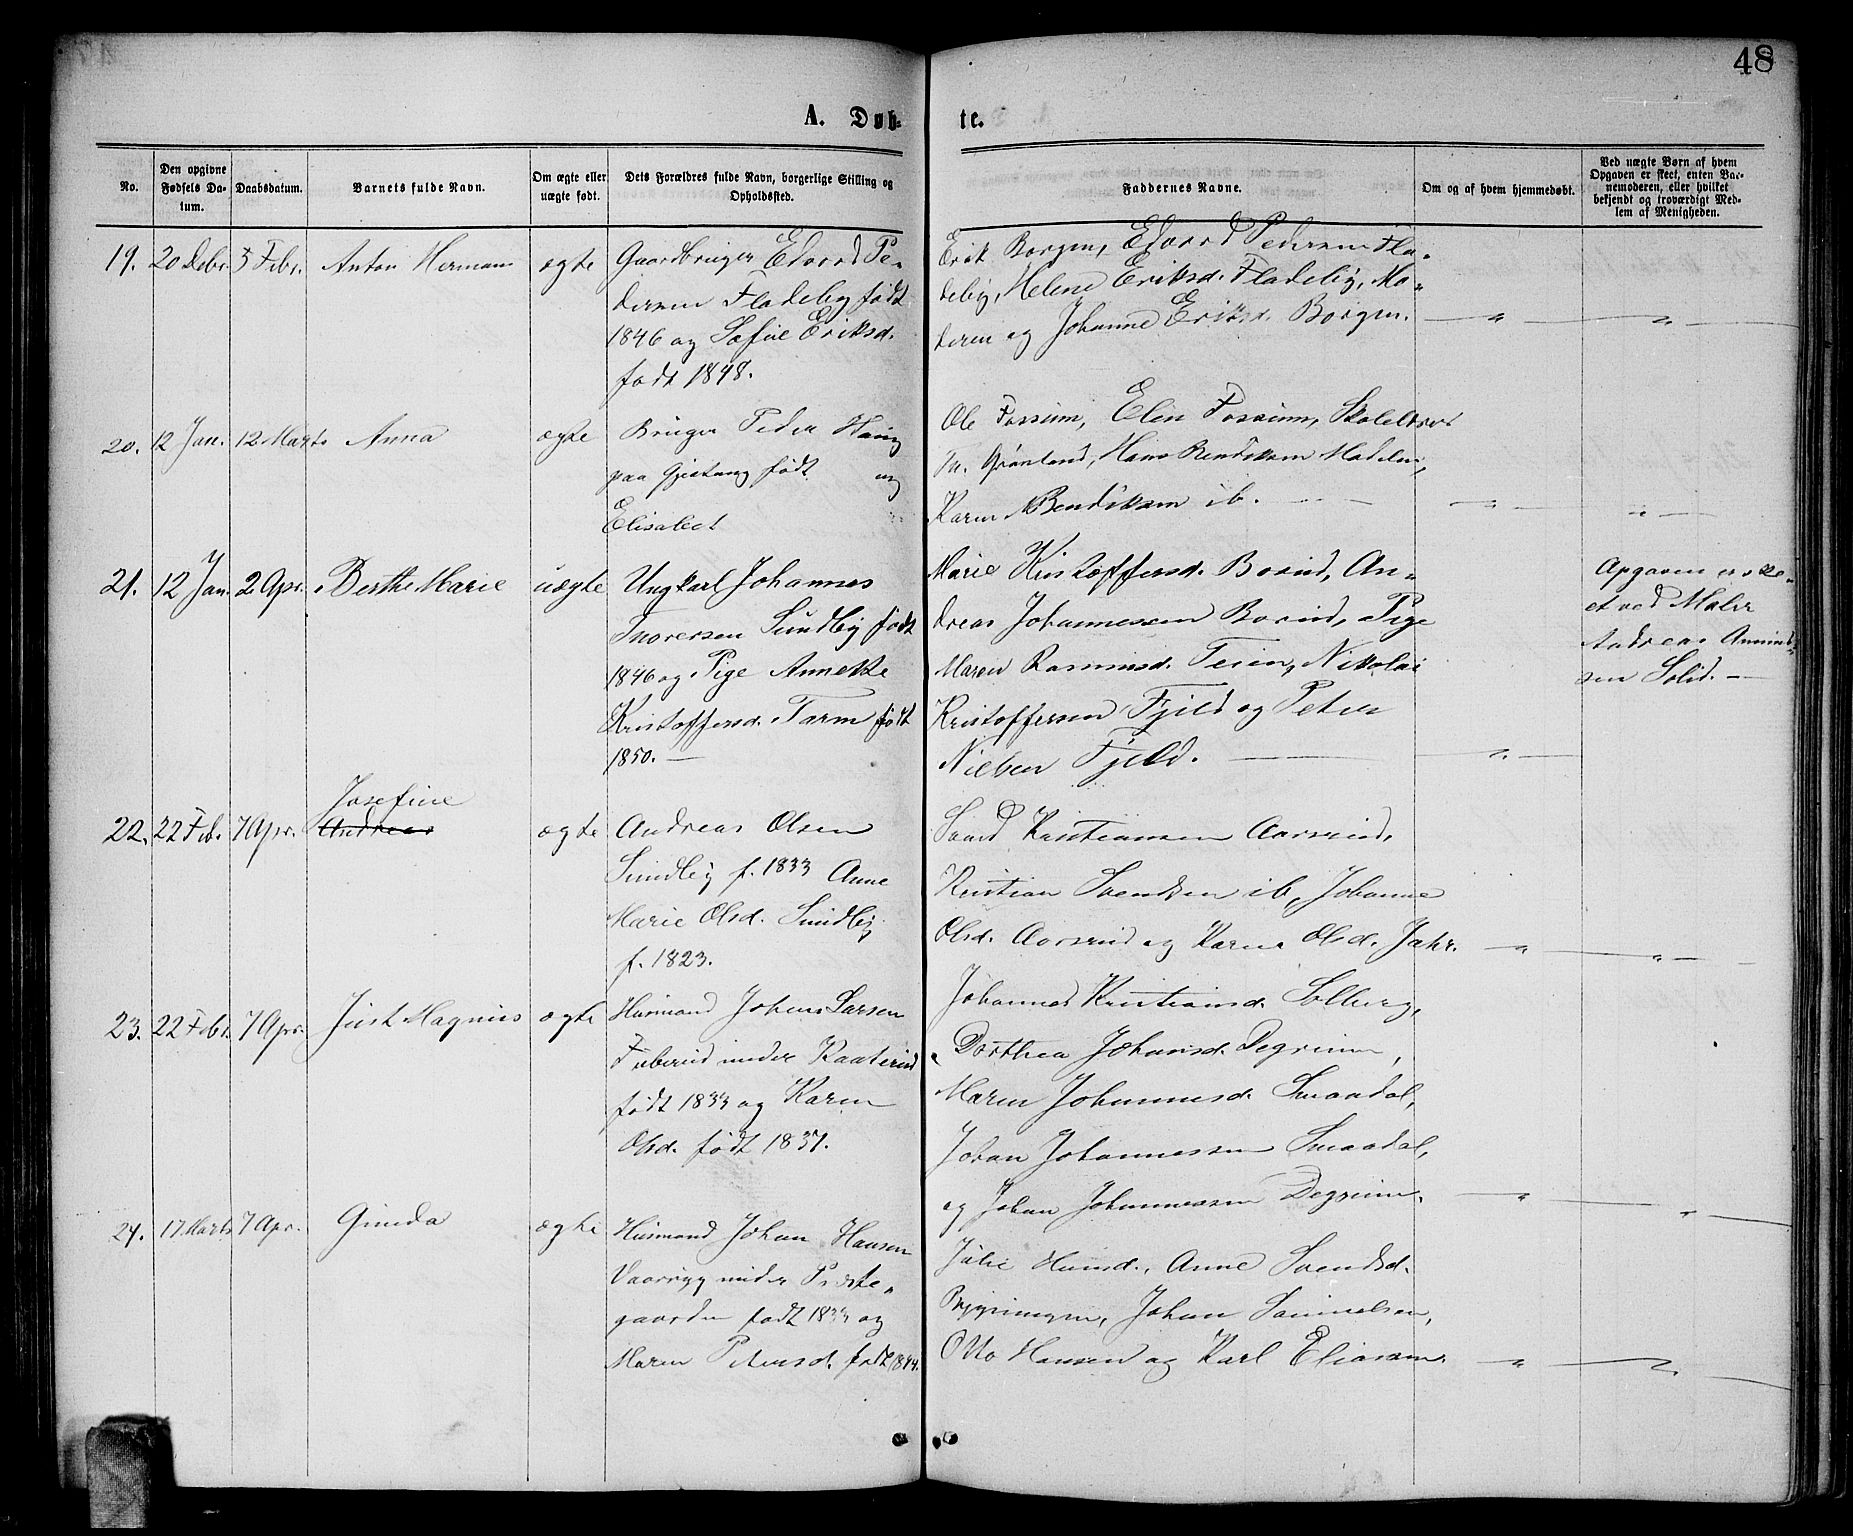 48
A. Døb-
te.
No.
Den opgivne Fødsels Da-
tum.
Daabsdatum.
Barnets fulde Navn.
Om ægte eller
uægte født.
Dets Forældres fulde Navn, borgerlige Stilling og
Opholdssted.
Faddernes Navne.
Om og af hvem hjemmedøbt.
Ved uægte Børn af hvem
Opgaven er skeet, enten Bar-
nemoderen, eller hvilket
bekjendt og troværdigt Med-
lem af Menigheden.
19. 20 Debr. 5 Febr. Anton Herman ægte
Gaardbruger Edvard Pe-
dersen Fladeby født
1846 og Sofie Eriksd.
født 1848.
Erik Borgen, Edvard Pedersen Fla-
deby, Helene Eriksd. Fladeby, Mo-
deren og Johanne Eriksd. Borgen. — " — — " —
20. 12 Jan. 12 Marts Anna ægte
Bruger Peder
paa Gjestang født og
Elisabet
Ole Fossum, Elen Fossum,
Grønland, Hans Bendiksen
Karen Bendiksen ib. — — " — — " —
21. 12 Jan. 2 Apr. Berthe Marie uægte
Ungkarl Johannes
Thoresen Sundby født
1846 og Pige Annette
Kristoffersd. Tarm født
1850. —
Marie Kristoffersd. Borud, An-
dreas Johannessen Borud, Pige
Maren Rasmusd. Teien, Nikolai
Kristoffersen Fjeld og Peter
Nielsen Fjeld. — — " —
Opgaven er ske-
et ved Maler
Andreas Amund-
sen Solid. —
22. 22 Feb. 7 Apr. Josefine
Andreas
ægte
Andreas Olsen
Sundby f. 1833 Anne
Marie Olsd. Sundby
f. 1823.
Kristiansen Aarsrud,
Kristian Svendsen ib, Johanne
Olsd. Aarsrud og Karen Olsd. Jahr. — " — — " —
23. 22 Febr. 7 Apr. Just Magnus ægte
Husmand Johan Larsen
under Kaaterud
født 1833 og Karen
Olsd. født 1837.
Johannes Kristiansd. Solberg,
Dorthea Johansd. Degrum,
Maren Johannesd. Smaadal,
Johan Johannessen Smaadal,
og Johan Johannessen Degrum. — " — — " —
24. 17 Marts 7 Apr. Gunda ægte
Husmand Johan Hansen
Vaarryg under Præste-
gaarden født 1833 og
Maren Petersd. født 1844.
Julie Hansd., Anne Svendsd.
Bygningen, Johan Samuelsen,
Otto Hansen og Karl Eliasen. — " — — " —